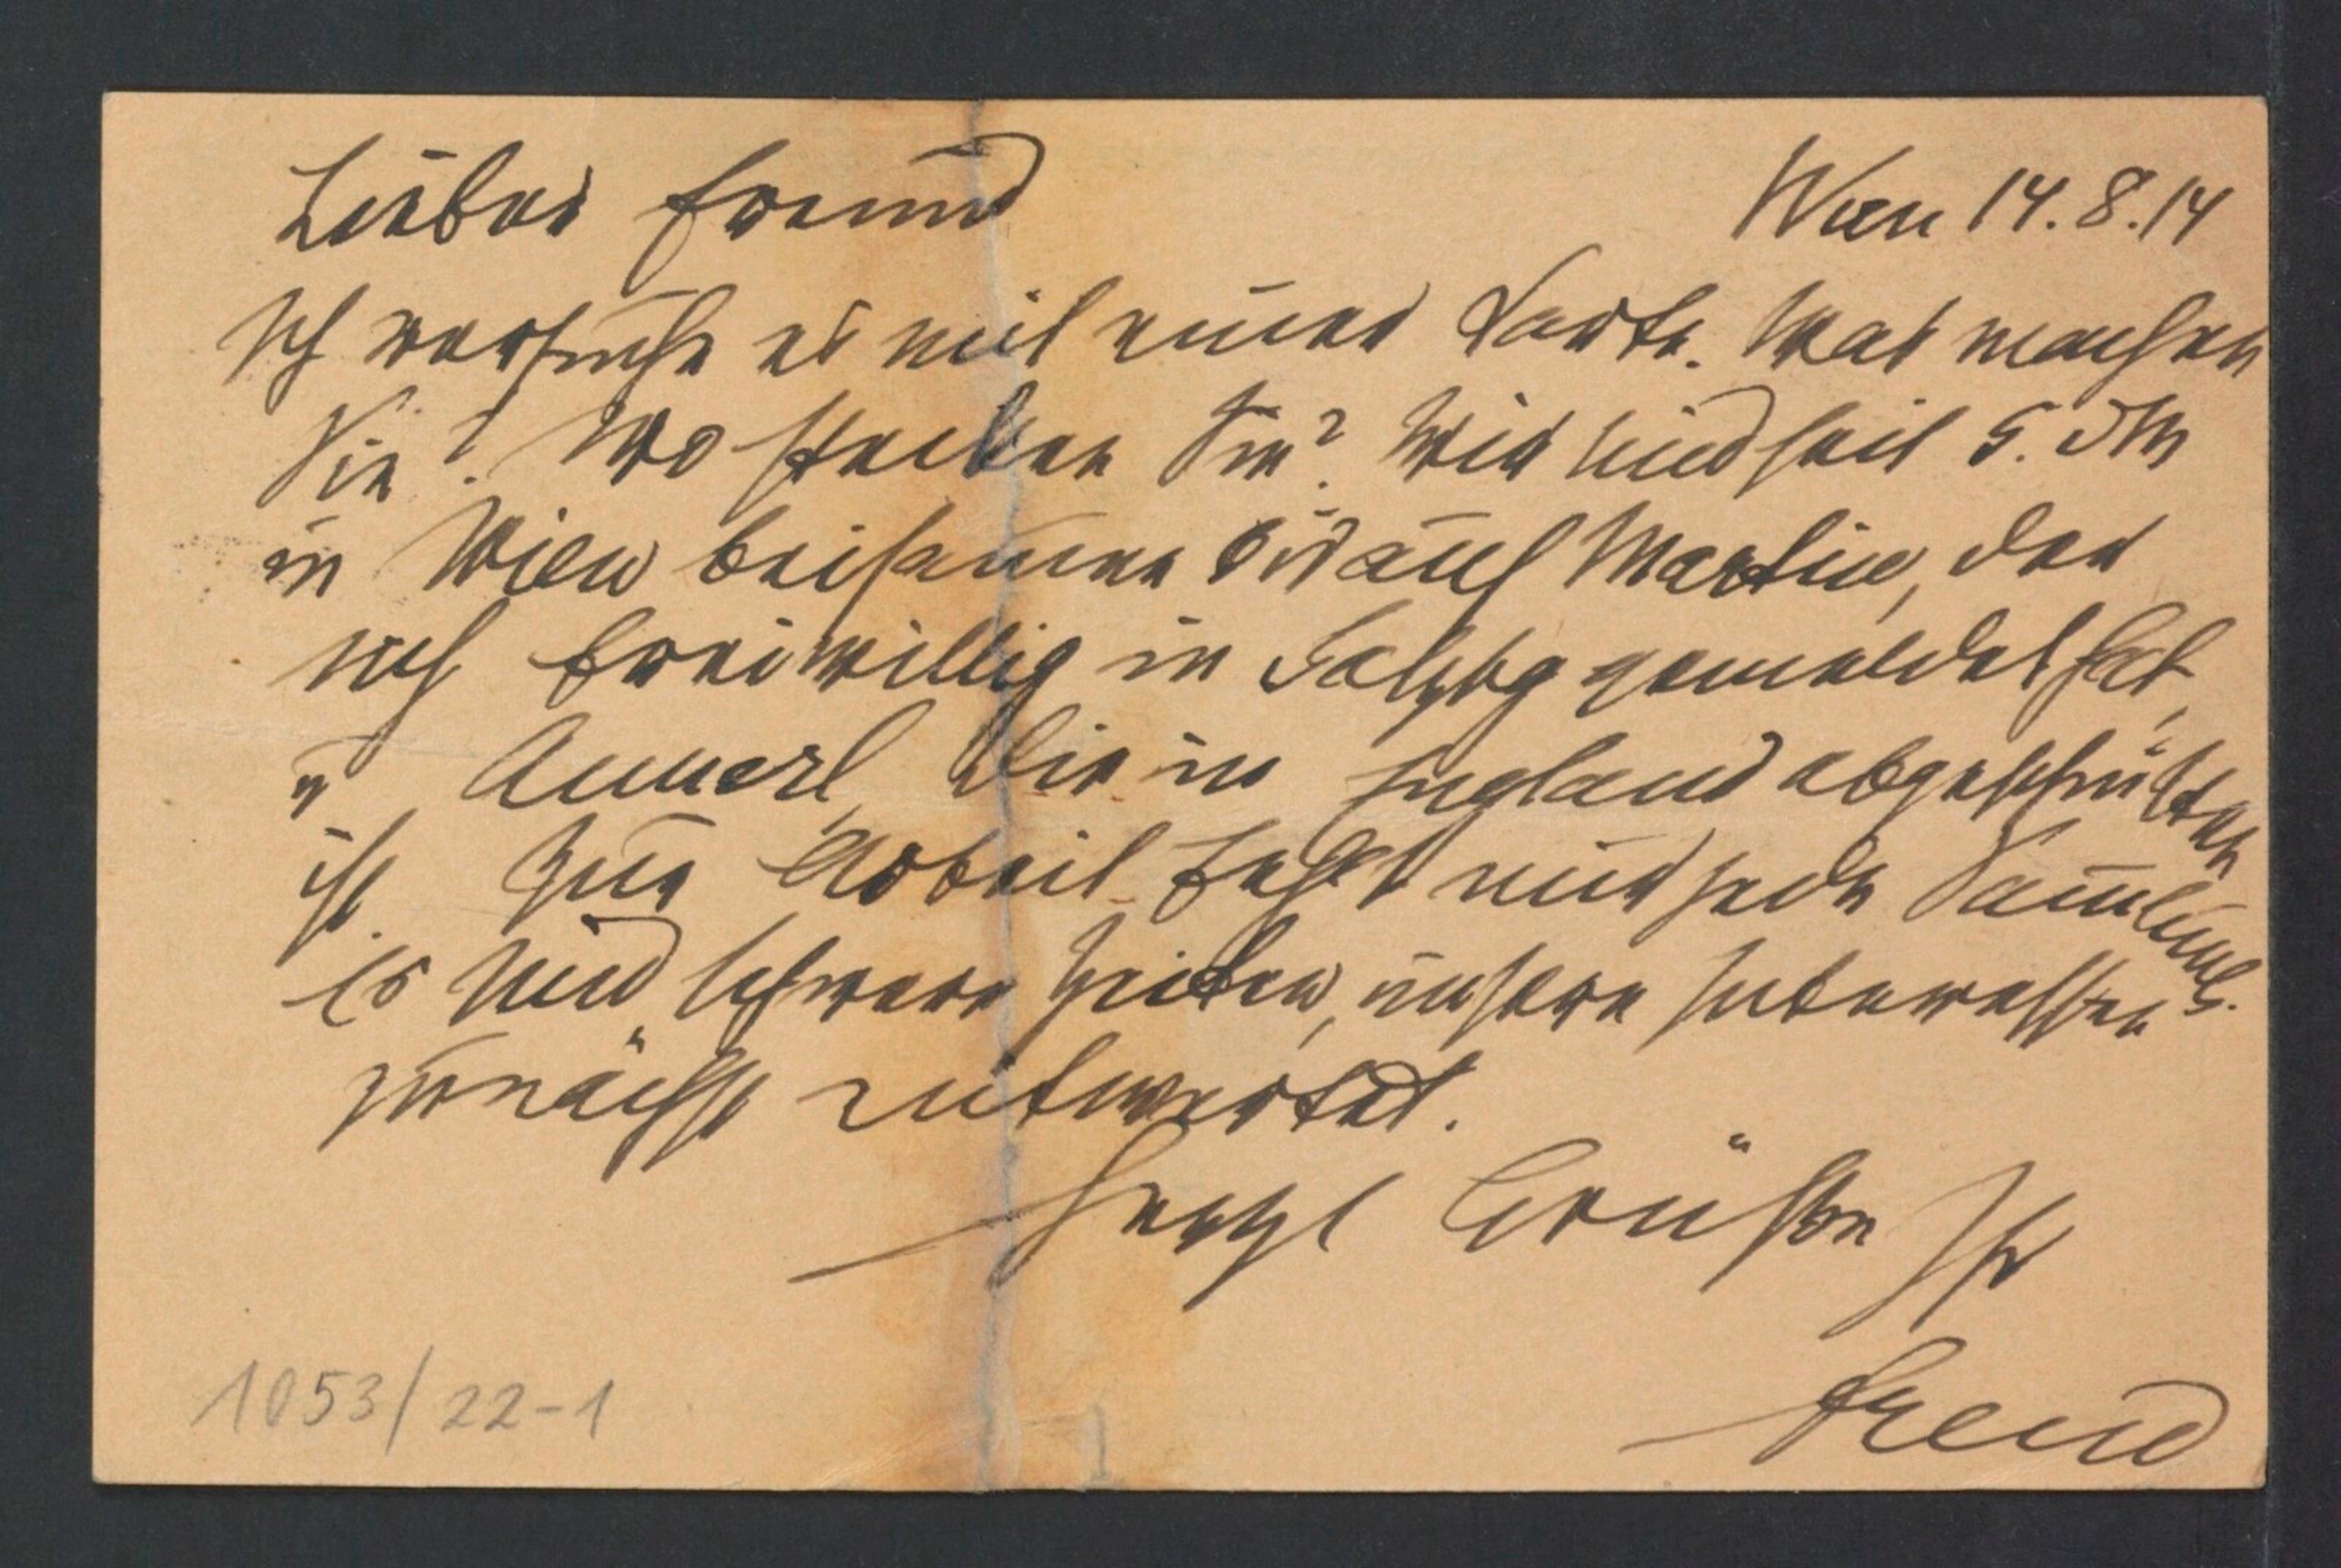 Lieber Freund
Wien 14.8.14
Ich versuche es mit einer Karte. Was machen
Sie? Wo stecken Sie? Wir sind seit 5. dM
in Wien beisammen bis auf Martin, der
sich freiwillig in Salzbg gemeldet hat,
u Annerl, die in England abgeschnitten
ist. Zur Arbeit fehlt mir jede Sammlung.
Es sind schwere Zeiten, unsere Interessen
zunächst entwertet.
Herzl Grüße Ihr
Freud
1053/22-1
1